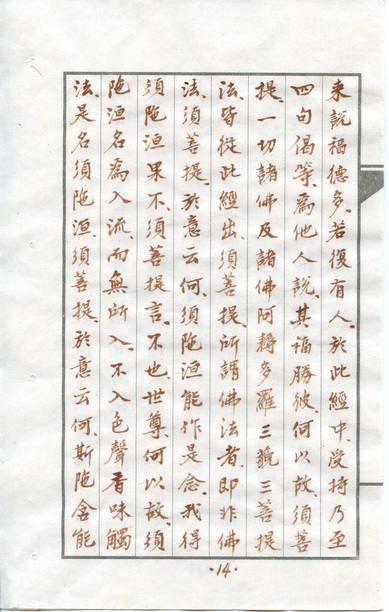 来說福德多、若復有人、於此經中、受持乃至
四句偈等、為他人說、其福勝彼、何以故、須菩
提、一切諸佛及諸佛阿耨多羅三藐三菩提
法、皆從此經出、須菩提、所謂佛法者、即非佛
法、須菩提、於意云何、須陁洹能作是念、我得
須陁洹果不、須菩提言、不也世尊、何以故、須
陁洹名為入流、而無所入、不入色聲香味觸
法、是名須陁洹、須菩提、於意云何、斯陁含能
·14·